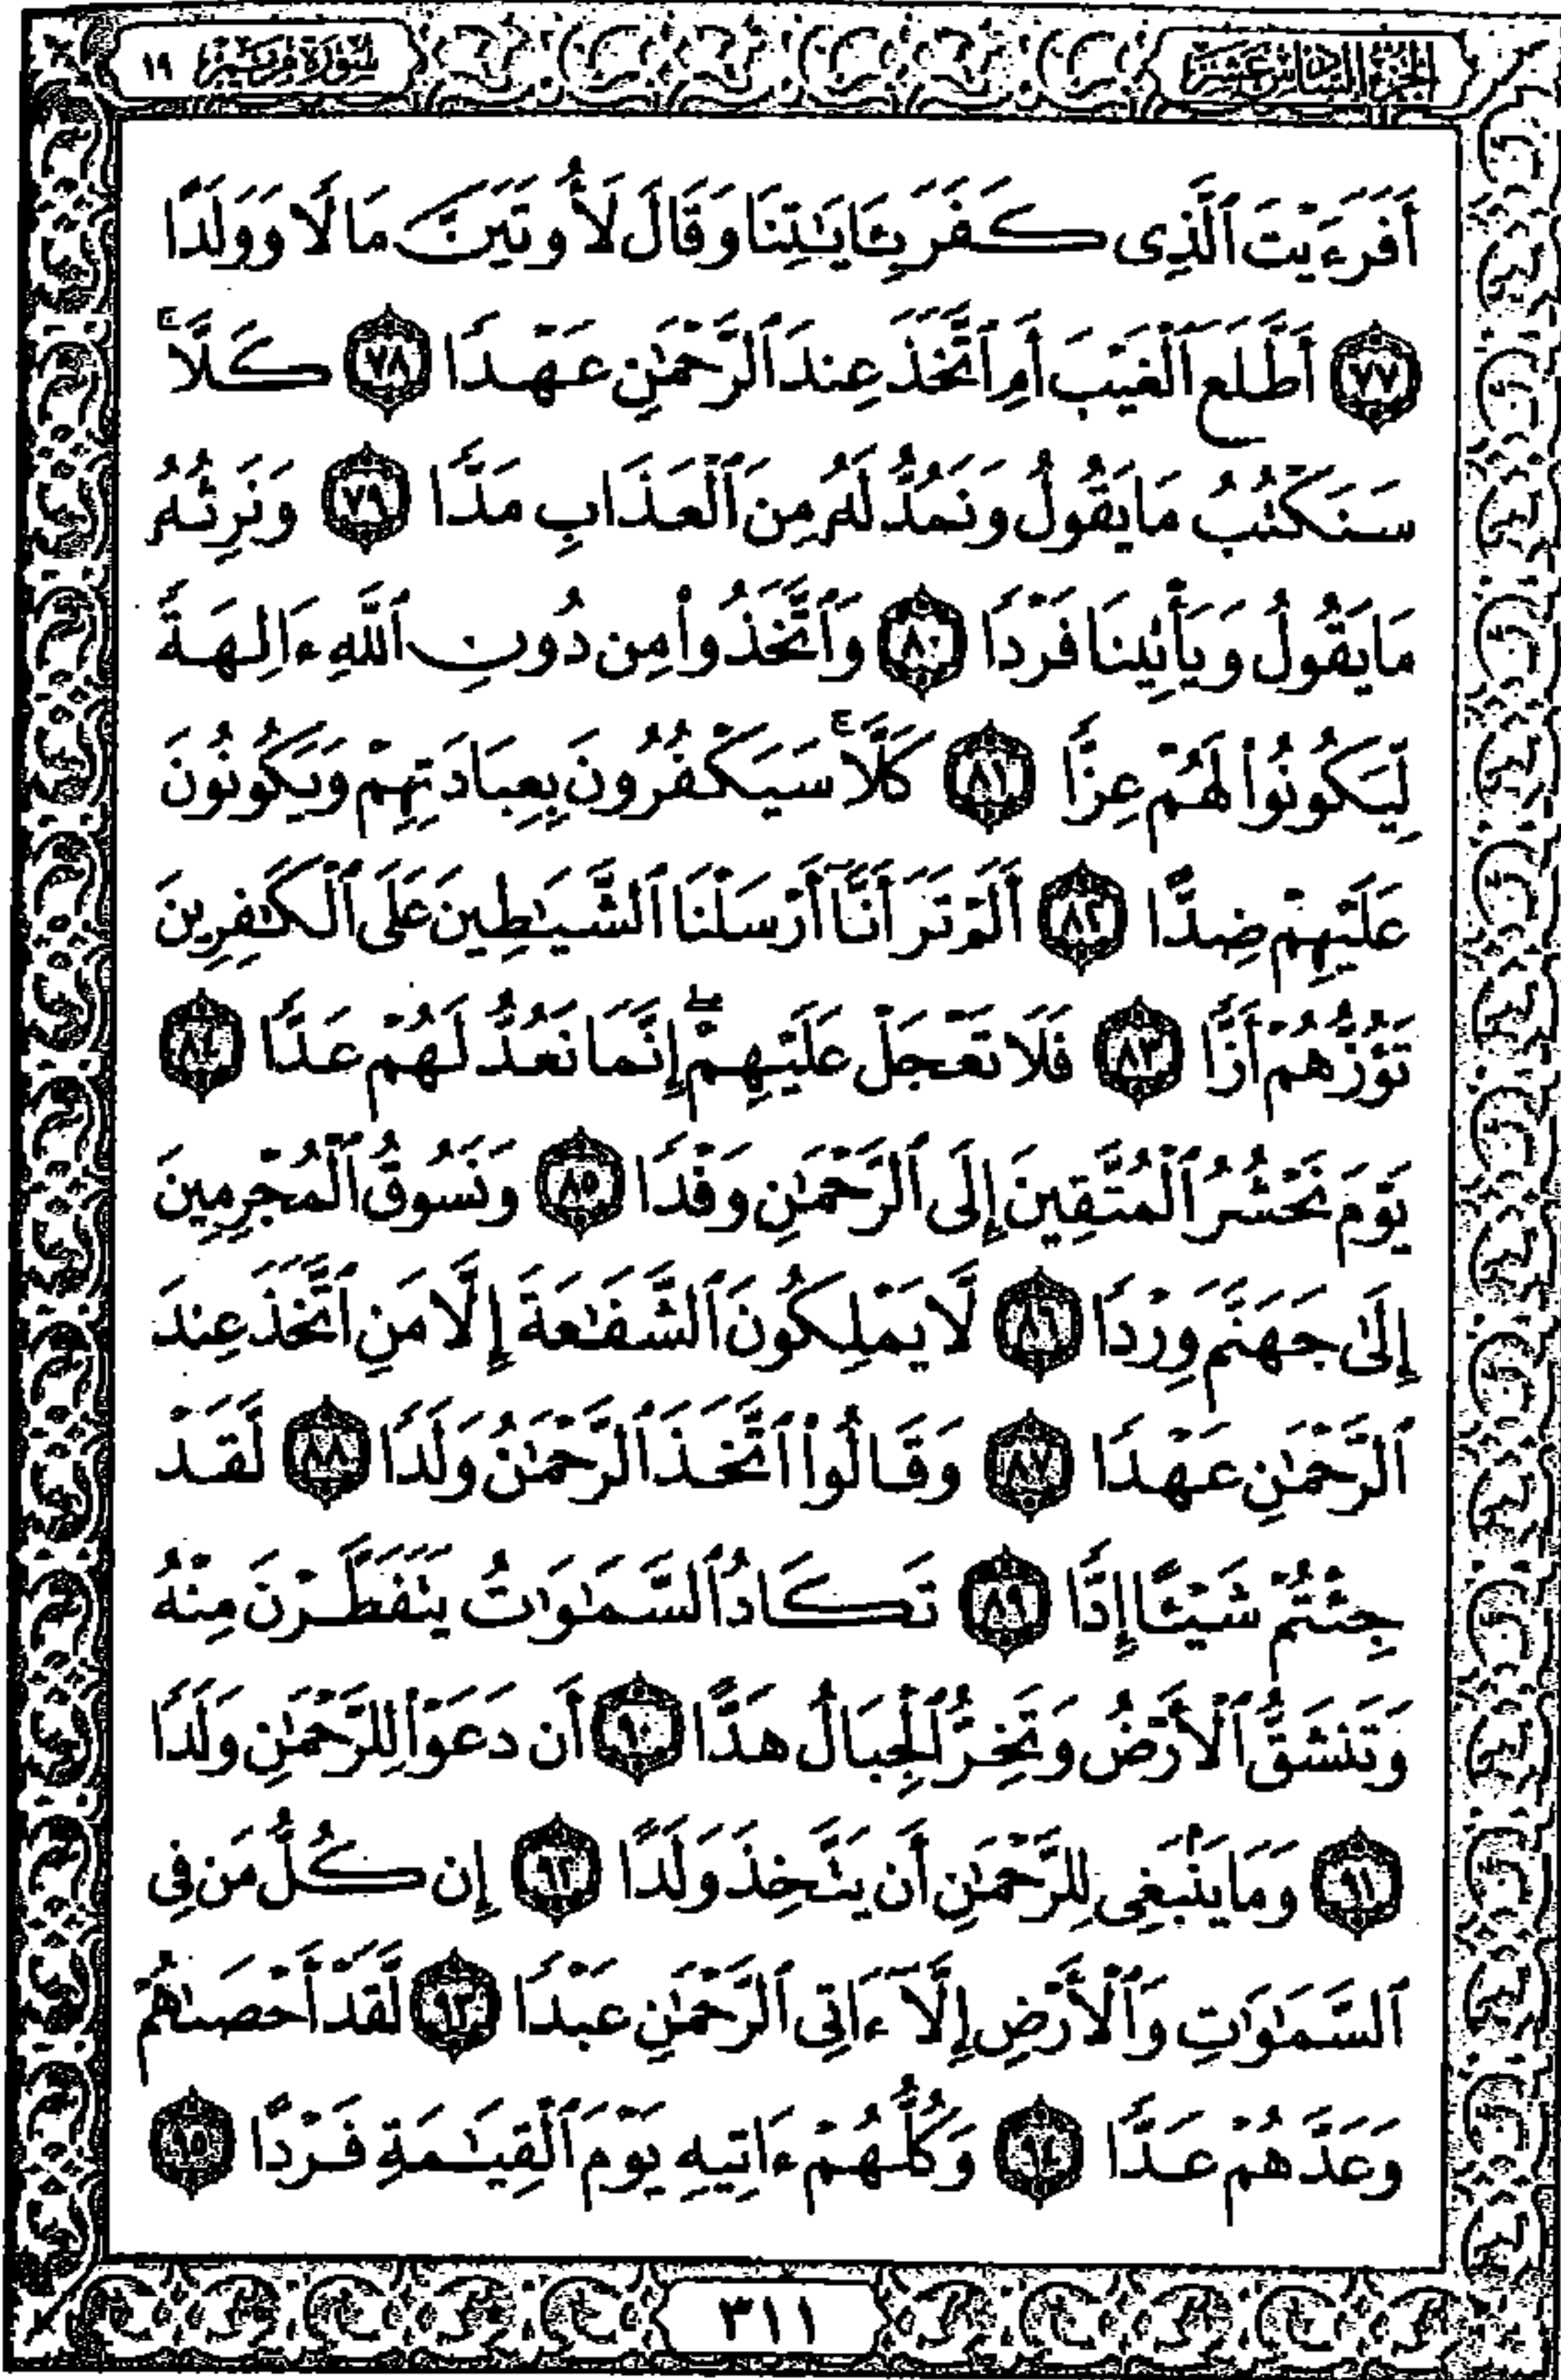 الجزء السادس عشر
سورة مريم ١٩
أَفَرَءَيْتَ ٱلَّذِى كَفَرَ بِـَٔايَـٰتِنَا وَقَالَ لَأُوتَيَنَّ مَالًا وَوَلَدًا
٧٧ أَطَّلَعَ ٱلْغَيْبَ أَمِ ٱتَّخَذَ عِندَ ٱلرَّحْمَـٰنِ عَهْدًا ٧٨ كَلَّا ۚ
سَنَكْتُبُ مَا يَقُولُ وَنَمُدُّ لَهُۥ مِنَ ٱلْعَذَابِ مَدًّا ٧٩ وَنَرِثُهُۥ
مَا يَقُولُ وَيَأْتِينَا فَرْدًا ٨٠ وَٱتَّخَذُوا۟ مِن دُونِ ٱللَّهِ ءَالِهَةً
لِّيَكُونُوا۟ لَهُمْ عِزًّا ٨١ كَلَّا ۚ سَيَكْفُرُونَ بِعِبَادَتِهِمْ وَيَكُونُونَ
عَلَيْهِمْ ضِدًّا ٨٢ أَلَمْ تَرَ أَنَّآ أَرْسَلْنَا ٱلشَّيَـٰطِينَ عَلَى ٱلْكَـٰفِرِينَ
تَؤُزُّهُمْ أَزًّا ٨٣ فَلَا تَعْجَلْ عَلَيْهِمْ ۖ إِنَّمَا نَعُدُّ لَهُمْ عَدًّا ٨٤
يَوْمَ نَحْشُرُ ٱلْمُتَّقِينَ إِلَى ٱلرَّحْمَـٰنِ وَفْدًا ٨٥ وَنَسُوقُ ٱلْمُجْرِمِينَ
إِلَىٰ جَهَنَّمَ وِرْدًا ٨٦ لَّا يَمْلِكُونَ ٱلشَّفَـٰعَةَ إِلَّا مَنِ ٱتَّخَذَ عِندَ
ٱلرَّحْمَـٰنِ عَهْدًا ٨٧ وَقَالُوا۟ ٱتَّخَذَ ٱلرَّحْمَـٰنُ وَلَدًا ٨٨ لَّقَدْ
جِئْتُمْ شَيْـًٔا إِدًّا ٨٩ تَكَادُ ٱلسَّمَـٰوَٰتُ يَتَفَطَّرْنَ مِنْهُ
وَتَنشَقُّ ٱلْأَرْضُ وَتَخِرُّ ٱلْجِبَالُ هَدًّا ٩٠ أَن دَعَوْا۟ لِلرَّحْمَـٰنِ وَلَدًا
٩١ وَمَا يَنۢبَغِى لِلرَّحْمَـٰنِ أَن يَتَّخِذَ وَلَدًا ٩٢ إِن كُلُّ مَن فِى
ٱلسَّمَـٰوَٰتِ وَٱلْأَرْضِ إِلَّآ ءَاتِى ٱلرَّحْمَـٰنِ عَبْدًا ٩٣ لَّقَدْ أَحْصَىٰهُمْ
وَعَدَّهُمْ عَدًّا ٩٤ وَكُلُّهُمْ ءَاتِيهِ يَوْمَ ٱلْقِيَـٰمَةِ فَرْدًا ٩٥
٣١١